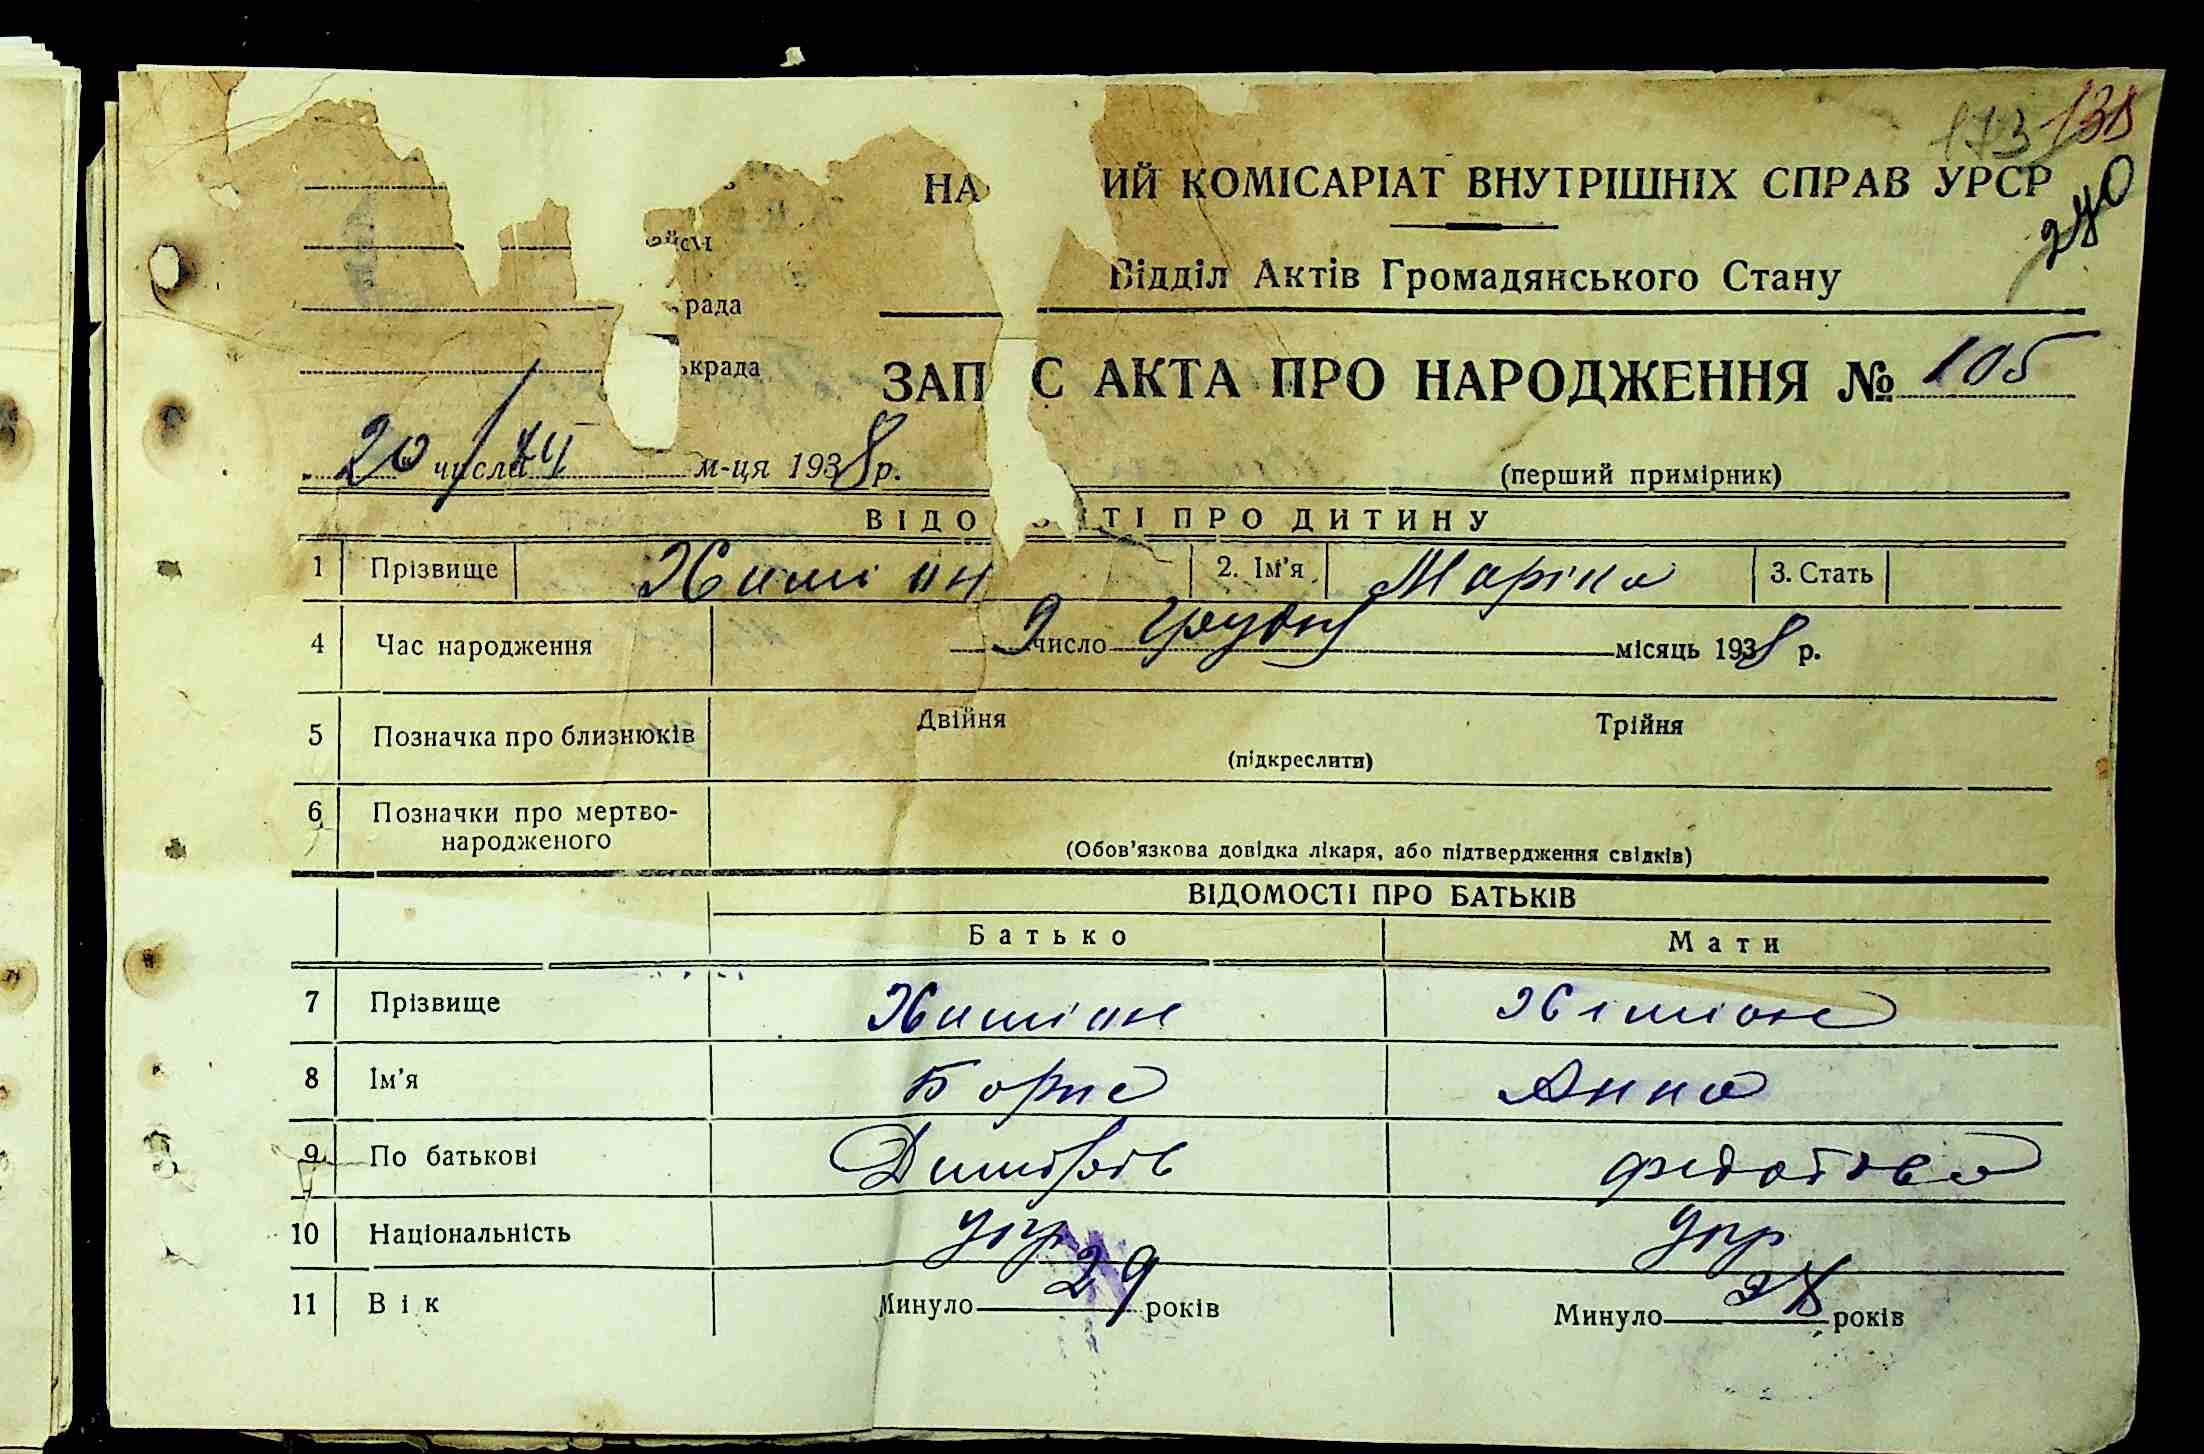 173 138
НА ИЙ КОМІСАРІАТ ВНУТРІШНІХ СПРАВ УРСР
240
Відділ Актів Громадянського Стану
рада
крада
ЗАП С АКТА ПРО НАРОДЖЕННЯ № 105
20 числа м-ця 1938 р.
(перший примірник)
ВІДО ТІ ПРО ДИТИНУ
1 Прізвище Химіон 2. Ім'я Маріна 3. Стать
4 Час народження 9 число грудня місяць 1938 р.
5 Позначка про близнюків Двійня Трійня
(підкреслити)
6 Позначки про мертво-
народженого
(Обов'язкова довідка лікаря, або підтвердження свідків)
ВІДОМОСТІ ПРО БАТЬКІВ
Батько Мати
7 Прізвище Химіон Хіміон
8 Ім'я Борис Анна
9 По батькові Федотова
10 Національність Укр Укр
11 Вік Минуло 29 років Минуло 28 років